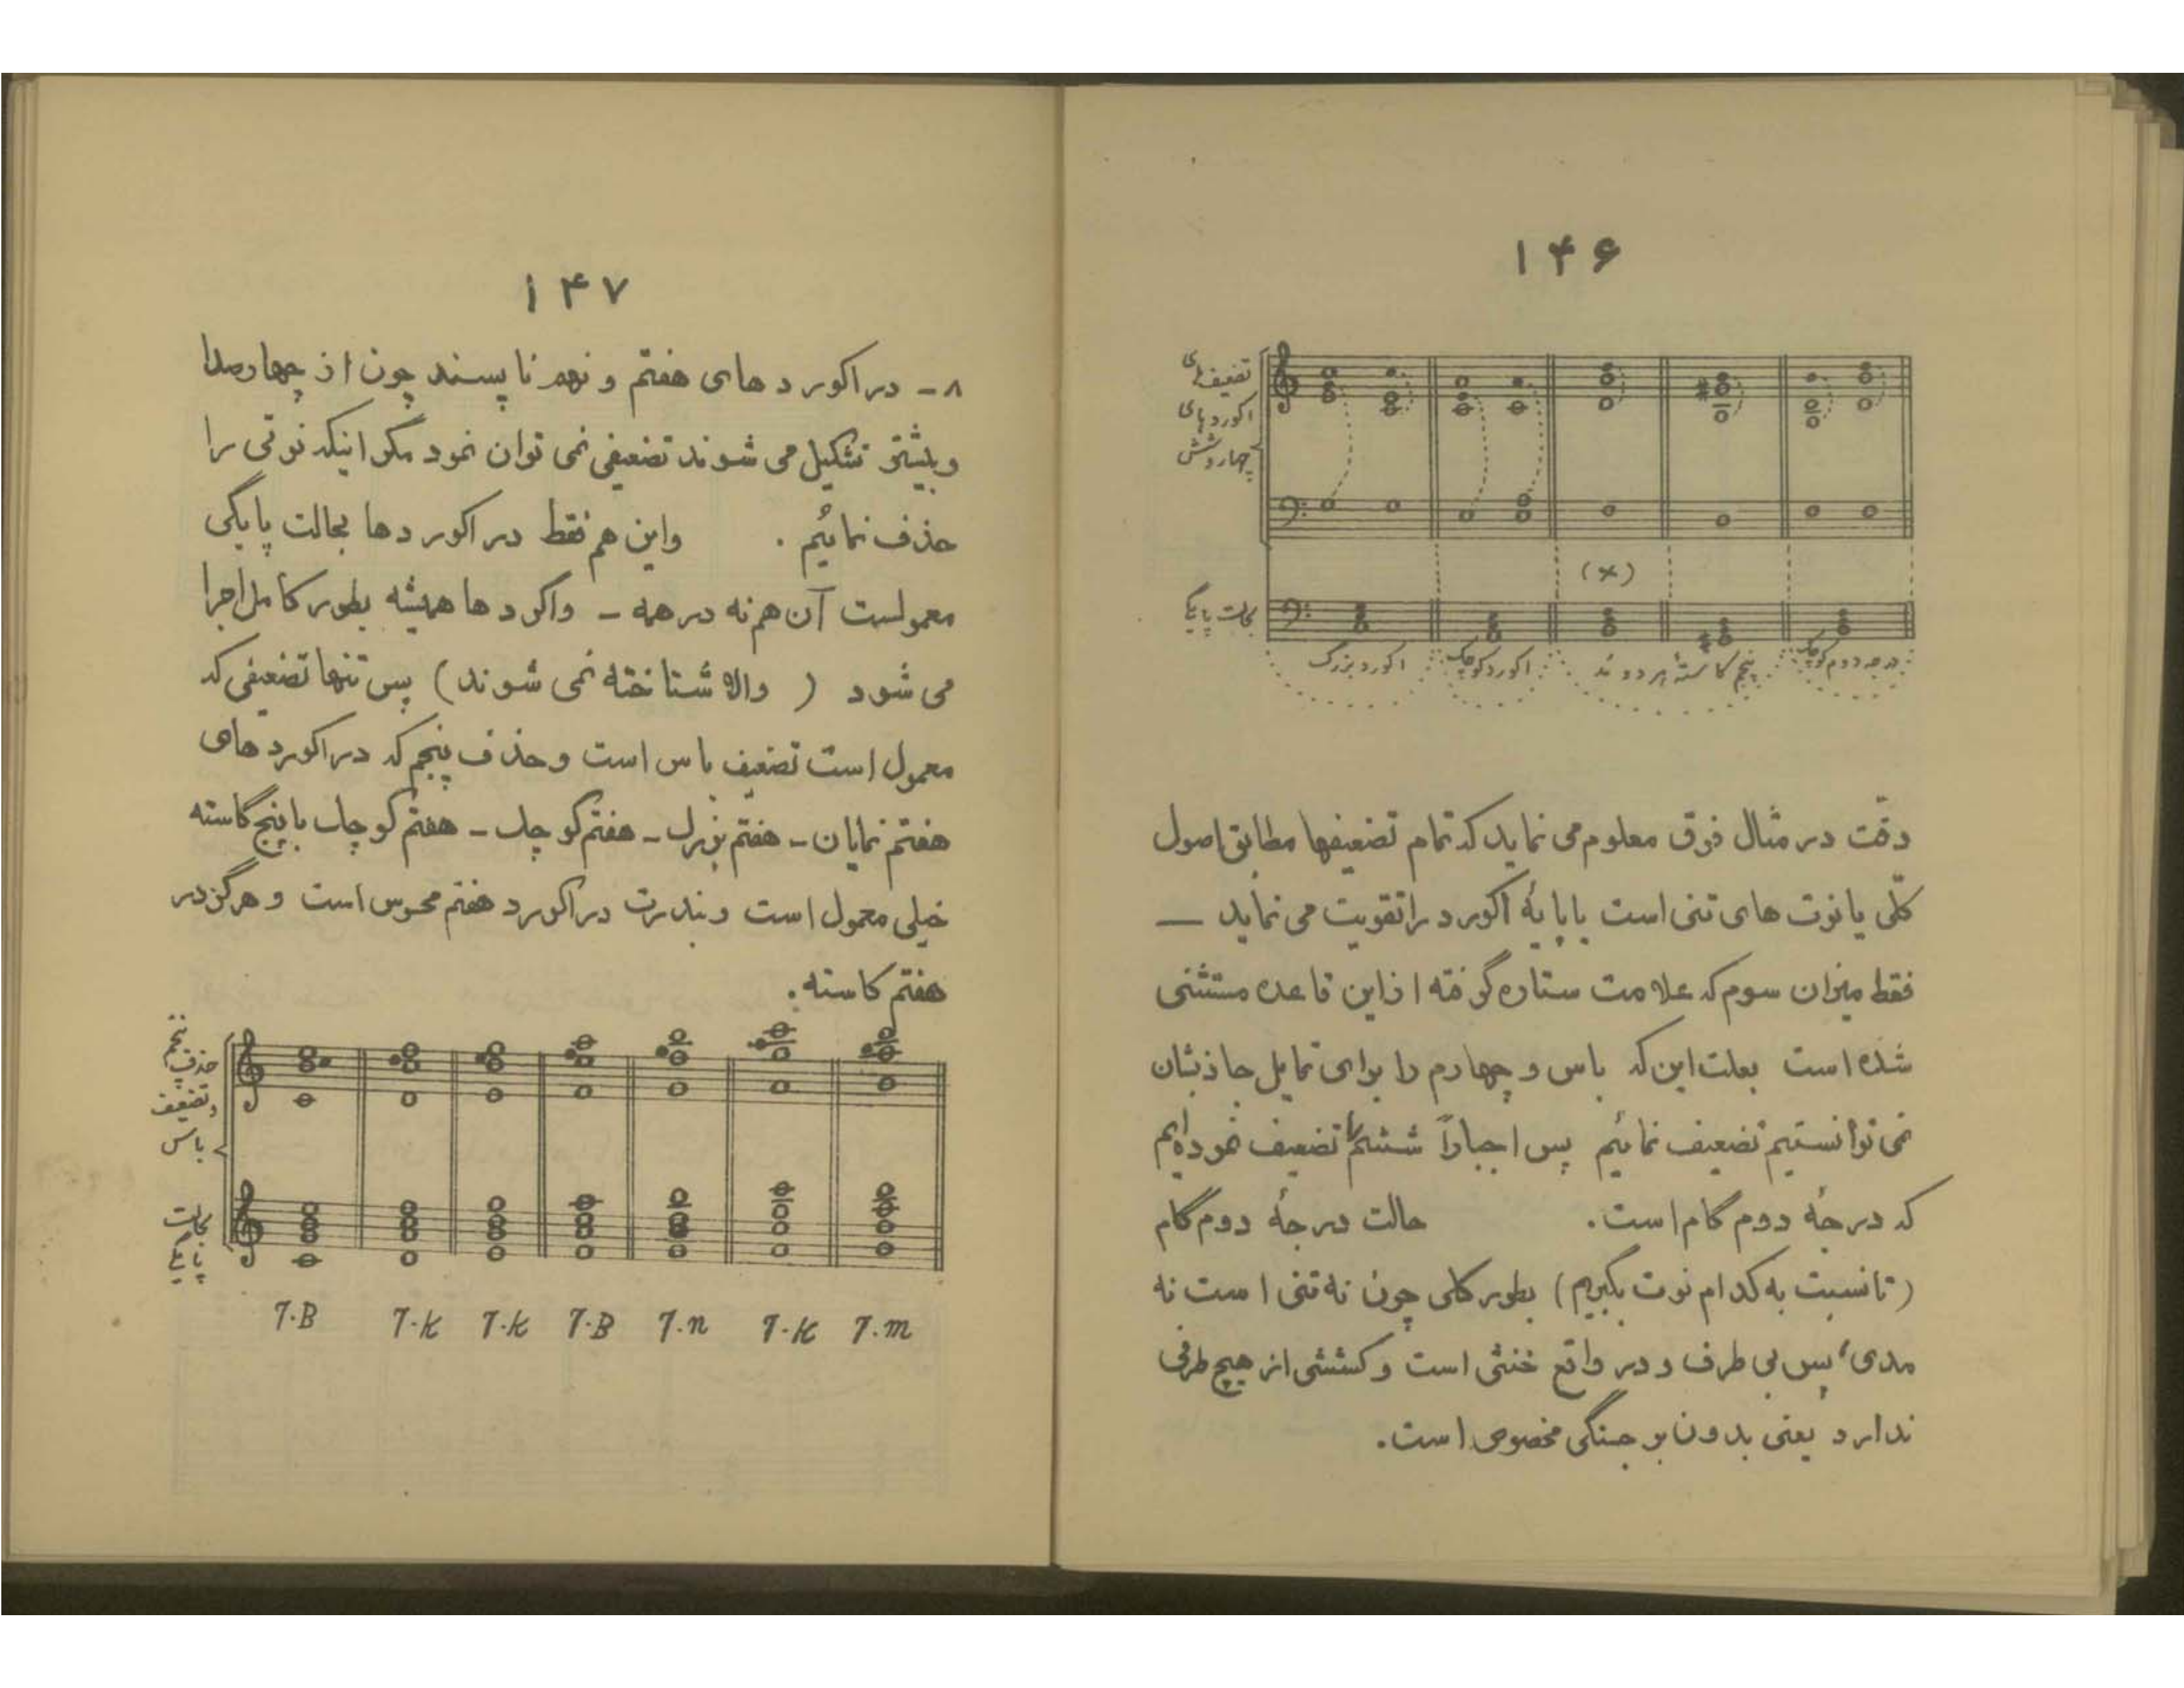 ۱۴۶
تضعیفهای
اکوردهای
چهار و شش
(×)
بحالت پایگی
اکورد بزرگ
اکورد کوچک
پنجم کاستهٔ هر دو مُد
درجه دوم کوچک
دقّت در مثال فوق معلوم می نماید که تمام تضعیفها مطابق اصول
کلّی یا نوت های تنی است یا پایهٔ اکورد را تقویت می نماید –
فقط میزان سوم که علامت ستاره گرفته از این قاعده مستثنی
شده است بعلت این که باس و چهارم را برای تمایل جاذبشان
نمی توانستیم تضعیف نمائیم پس اجباراً ششم را تضعیف نموده‌ایم
که درجهٔ دوم گام است. حالت درجهٔ دوم گام
(تا نسبت به کدام نوت بگیریم) بطور کلی چون نه تنی است نه
مدی، پس بی طرف و در واقع خنثی است و کششی از هیچ طرفی
ندارد یعنی بدون برجستگی مخصوص است.
۱۴۷
۸ – در اکورد های هفتم و نهم ناپسند چون از چهار صدا
و بیشتر تشکیل می شوند تضعیفی نمی توان نمود مگر اینکه نوتی را
حذف نمائیم . واین هم فقط در اکورد ها بحالت پایگی
معمولست آن هم نه در همه – واکورد ها همیشه بطور کامل اجرا
می شود ( والا شناخته نمی شوند) پس تنها تضعیفی که
معمول است تضعیف باس است و حذف پنجم که در اکورد های
هفتم نمایان – هفتم بزرگ – هفتم کوچک – هفتم کوچک با پنج کاسته
خیلی معمول است و بندرت در اکورد هفتم محسوس است و هرگز در
هفتم کاسته.
حذف پنجم
وتضعیف
باس
بحالت
پایگی
7.B 7.K 7.K 7.B 7.n 7.K 7.m